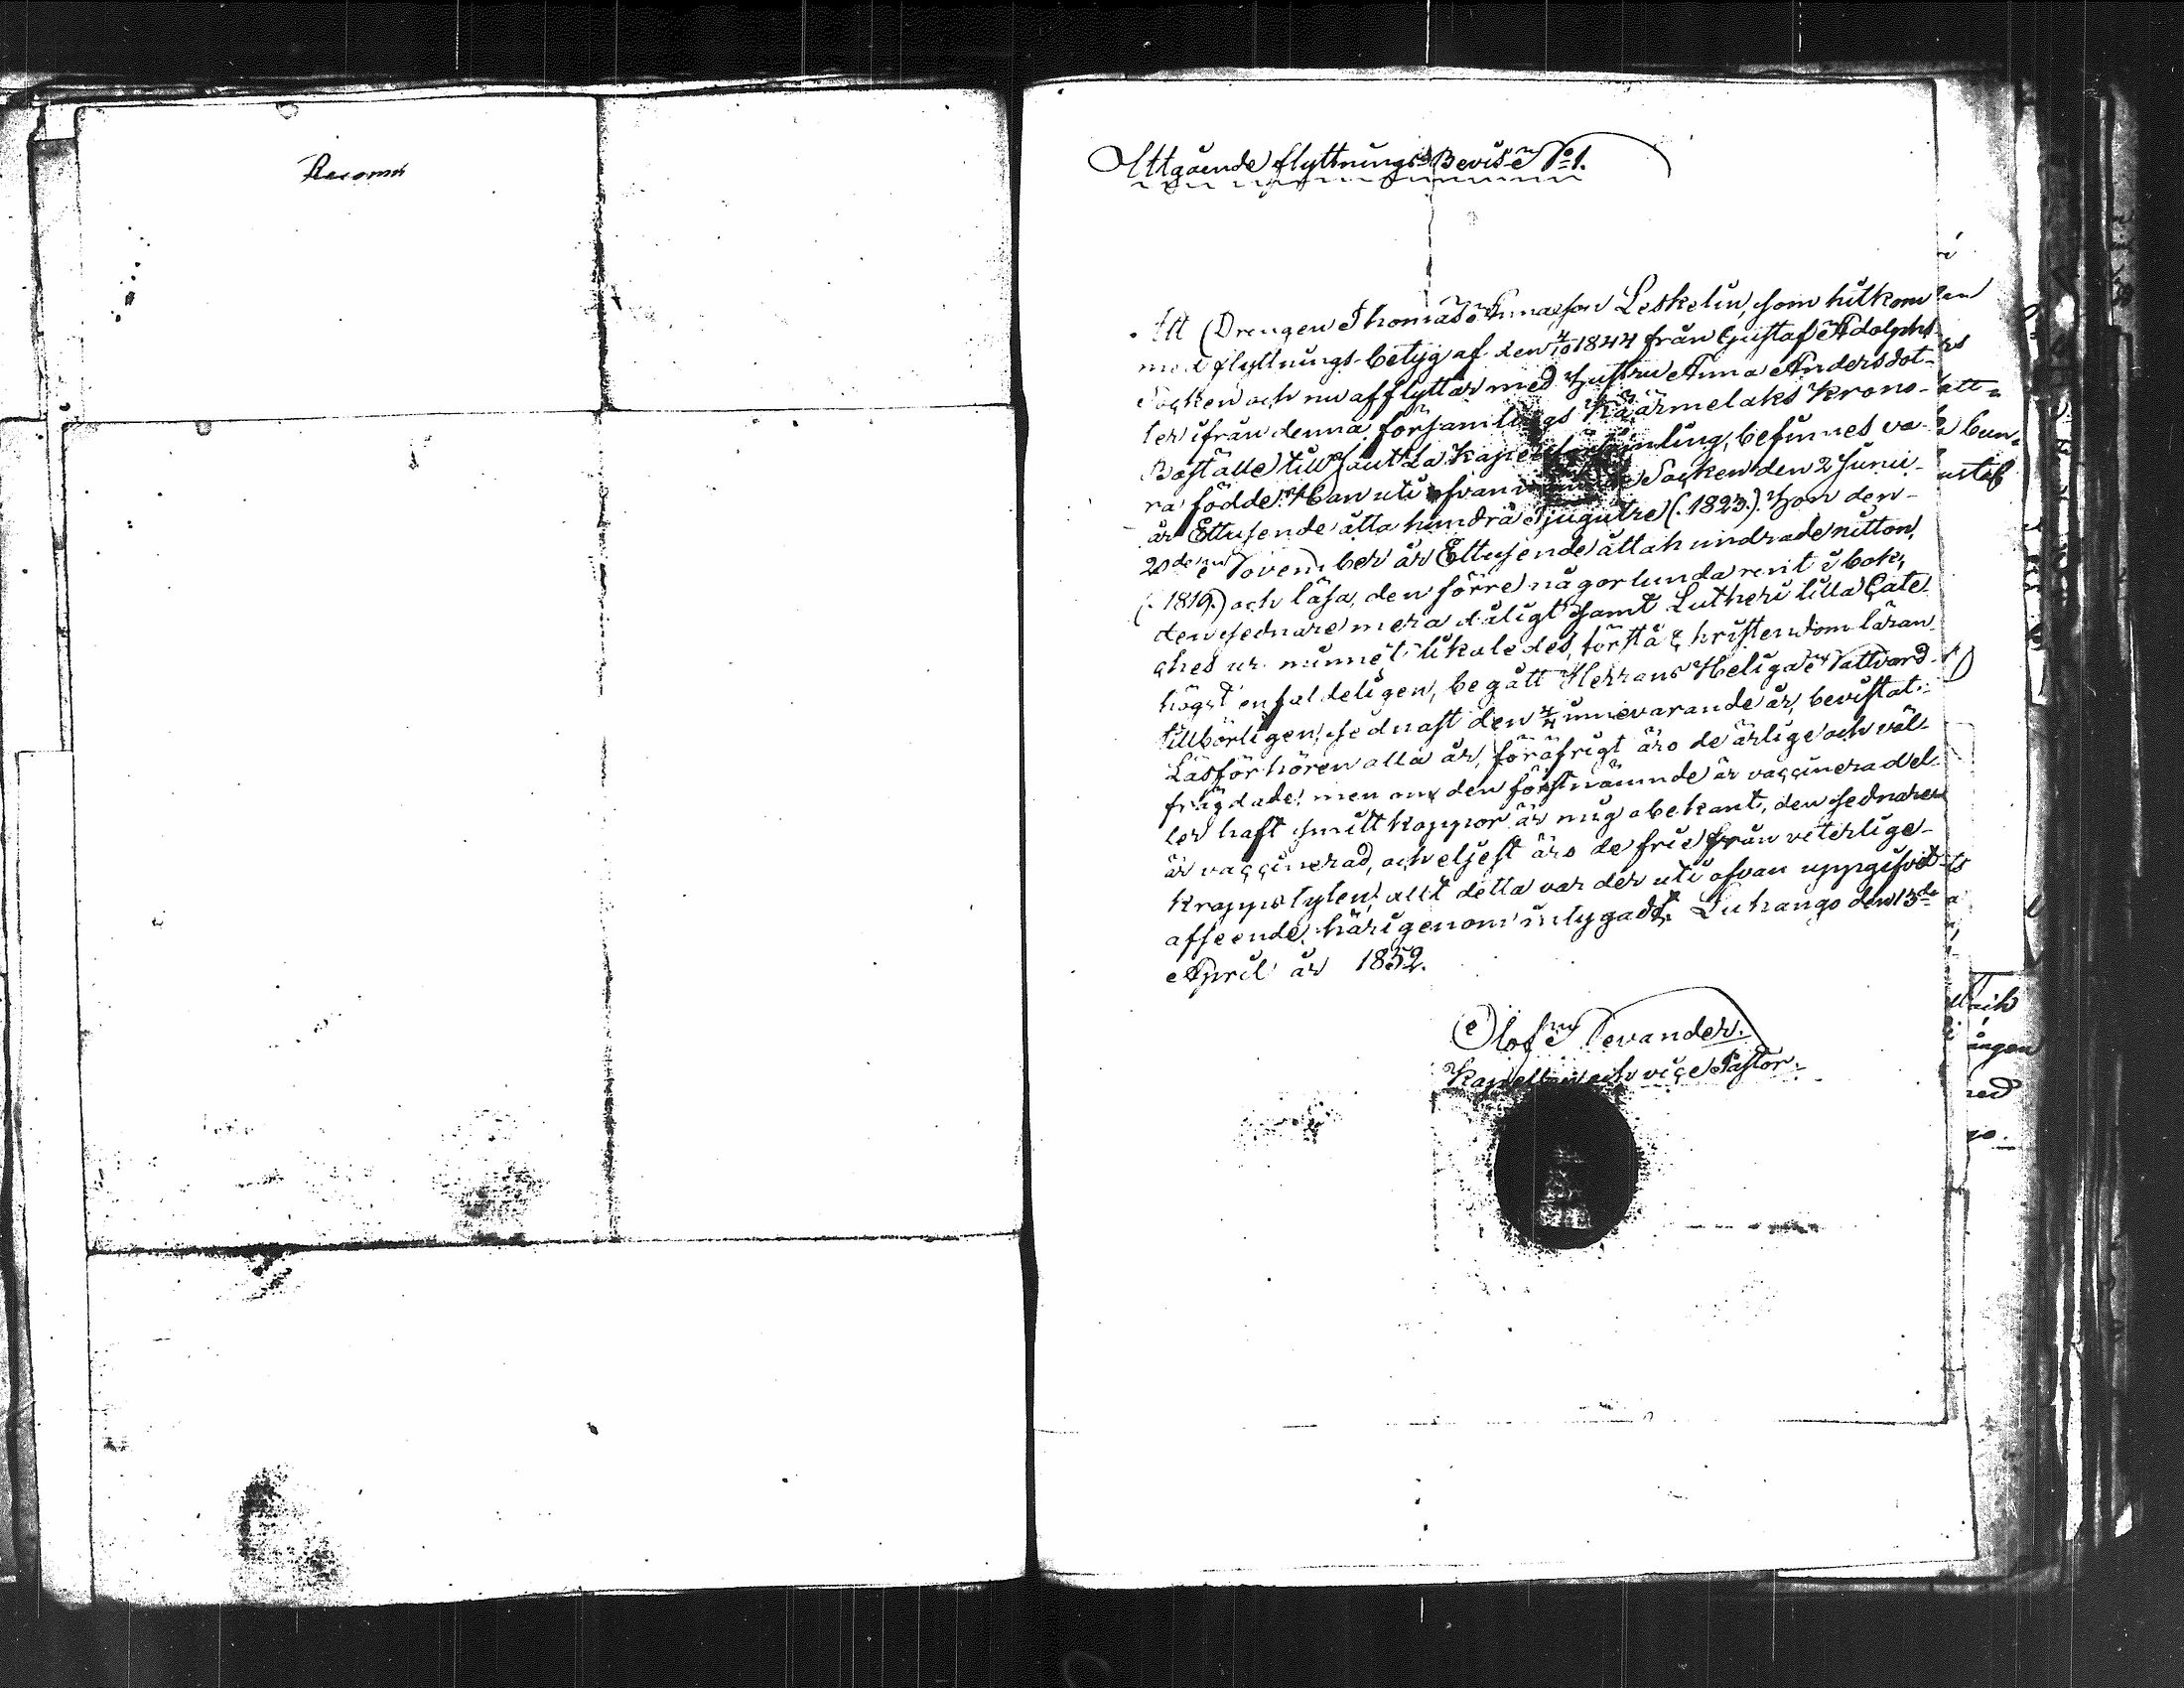 Recomn
Uttgående flyttnings Bevis № 1.
Att Drengen Thomas Annasson Leskelin, som hitkom
med flyttnings-betyg af den 4/10 1844 från Gustaf Adolphs
Socken och nu afflyttar med hustru Anna Andersdot-
ter ifrån denna församlings Käärmelaks Krono-
Boställe till Jautsa Kapellförsamling, befinnes va-
ra födde: Han uti ofvan Socken den 2 Junii
år Ettusende åtta hundra tjugutre (. 1823.). Hon den
20de November år Ettusende åttahundrade nitton,
(. 1819.) och läsa, den förre någorlunda rent i bok,
den sednare mera dåligt samt Lutheri lilla Cate-
ches ur minnet likaledes, förstå Christendom läran
högst enfaldeligen, begått Herrans Heliga Nattvard
tillbörligen, sednast den 4/4 innevarande år, bevistat
Läsförhören alla år, föröfrigt äro de ärlige och väl-
frägdade, men om den förstnämnde är vaccinerad el-
ler haft smittkoppor är mig obekant, den sednare
är vaccinerad, och eljest äro de frie från veterlige
kroppslyten, allt detta varder uti ofvan uppgifvit
afseende, härigenom intygadt. Luhango den 13de
April år 1852.
Olof Nevander.
Kapellan och vice Pastor.